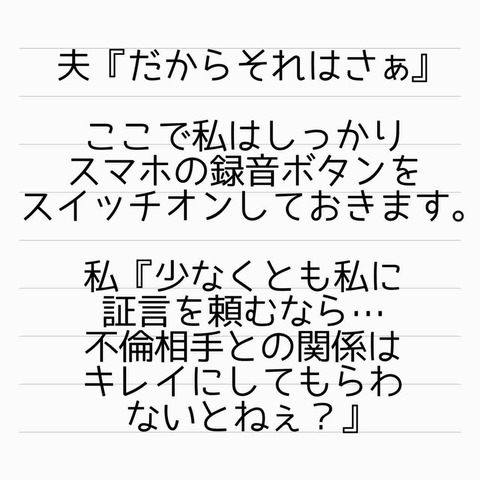 夫『だからそれはさぁ』
ここで私はしっかり
スマホの録音ボタンを
スイッチオンしておきます。
私『少なくとも私に
証言を頼むなら…
不倫相手との関係は
キレイにしてもらわ
ないとねぇ？』